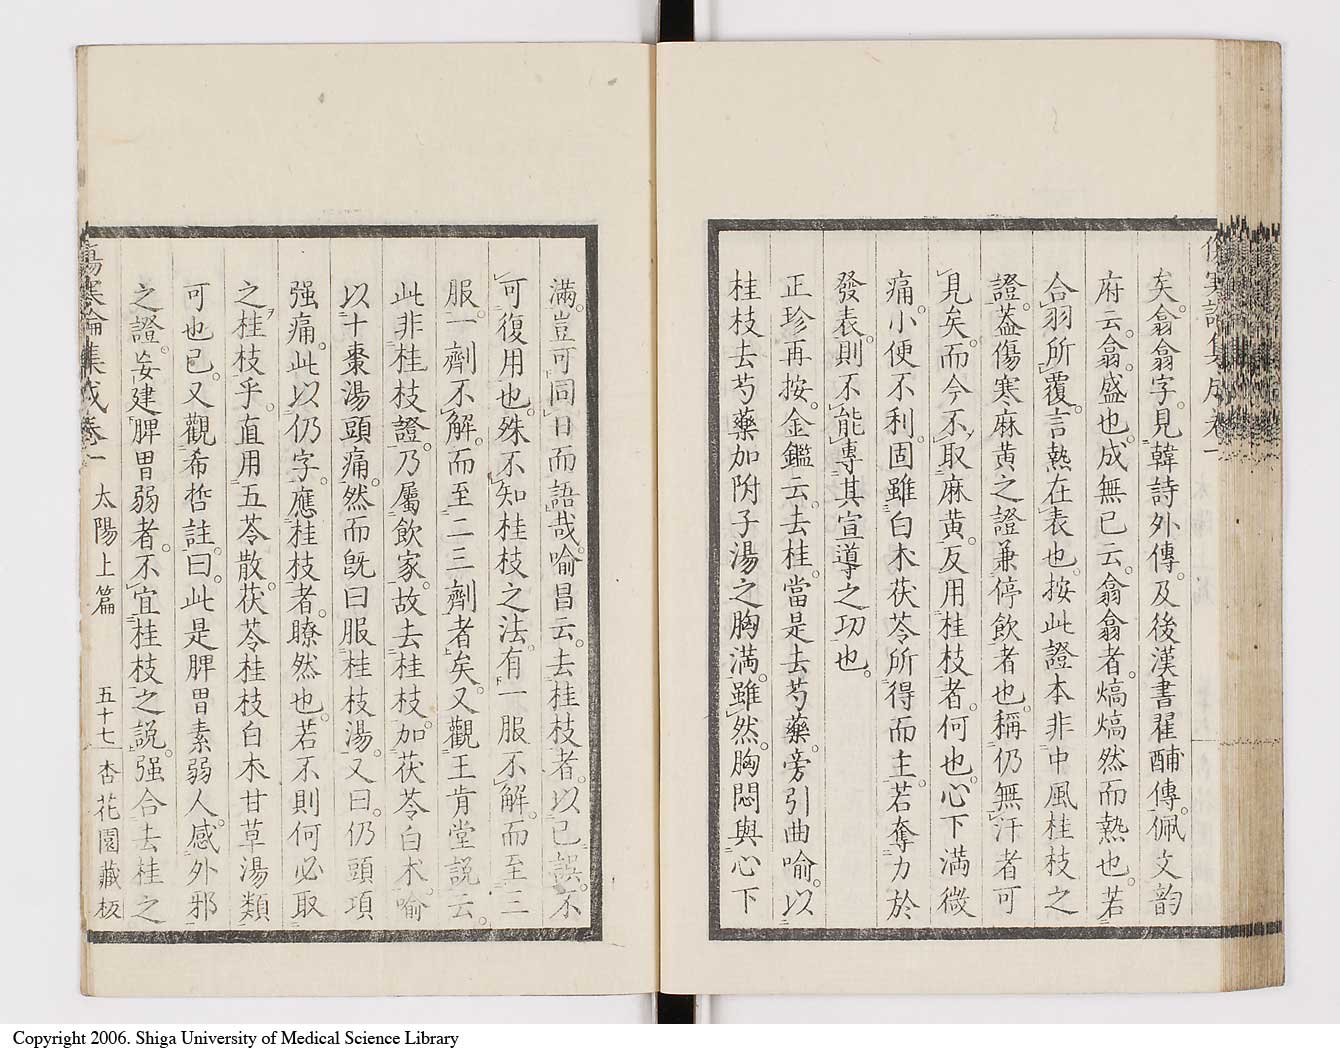 矣。翕翕字。見韓詩外傳。及後漢書翟酺傳。佩文韵
府云。翕。盛也。成無已云。翕翕者。熇熇然而熱也。若
合羽所覆。言熱在表也。按此證本非中風桂枝之
證。葢傷寒麻黃之證兼停飲者也。稱仍無汗者可
見矣。而今不取麻黃。反用桂枝者。何也。心下滿微
痛。小便不利。固雖白朮茯苓所得而主。若奪力於
發表。則不能專其宣導之功也。
正珍再按。金鑑云。去桂。當是去芍藥。旁引曲喻。以
桂枝去芍藥加附子湯之胸滿。雖然。胸悶與心下
滿。豈可同日而語哉。喻昌云。去桂枝者。以已誤。不
可復用也。殊不知桂枝之法。有一服不解。而至二三
服。一劑不解。而至二三劑者矣。又觀王肯堂說云。
此非桂枝證。乃屬飲家。故去桂枝。加茯苓白朮。喻
以十棗湯頭痛。然而旣曰服桂枝湯。又曰。仍頭項
强痛。此以仍字。應桂枝者。瞭然也。若不則何必取
之桂枝乎。直用五苓散。茯苓桂枝白朮甘草湯類
可也已。又觀希哲註曰。此是脾胃素弱人。感外邪
之證。妄建脾胃弱者。不宜桂枝之說。强合去桂之
傷寒論集成卷一 太陽上篇 五十七 杏花園藏板
Copyright 2006. Shiga University of Medical Science Library